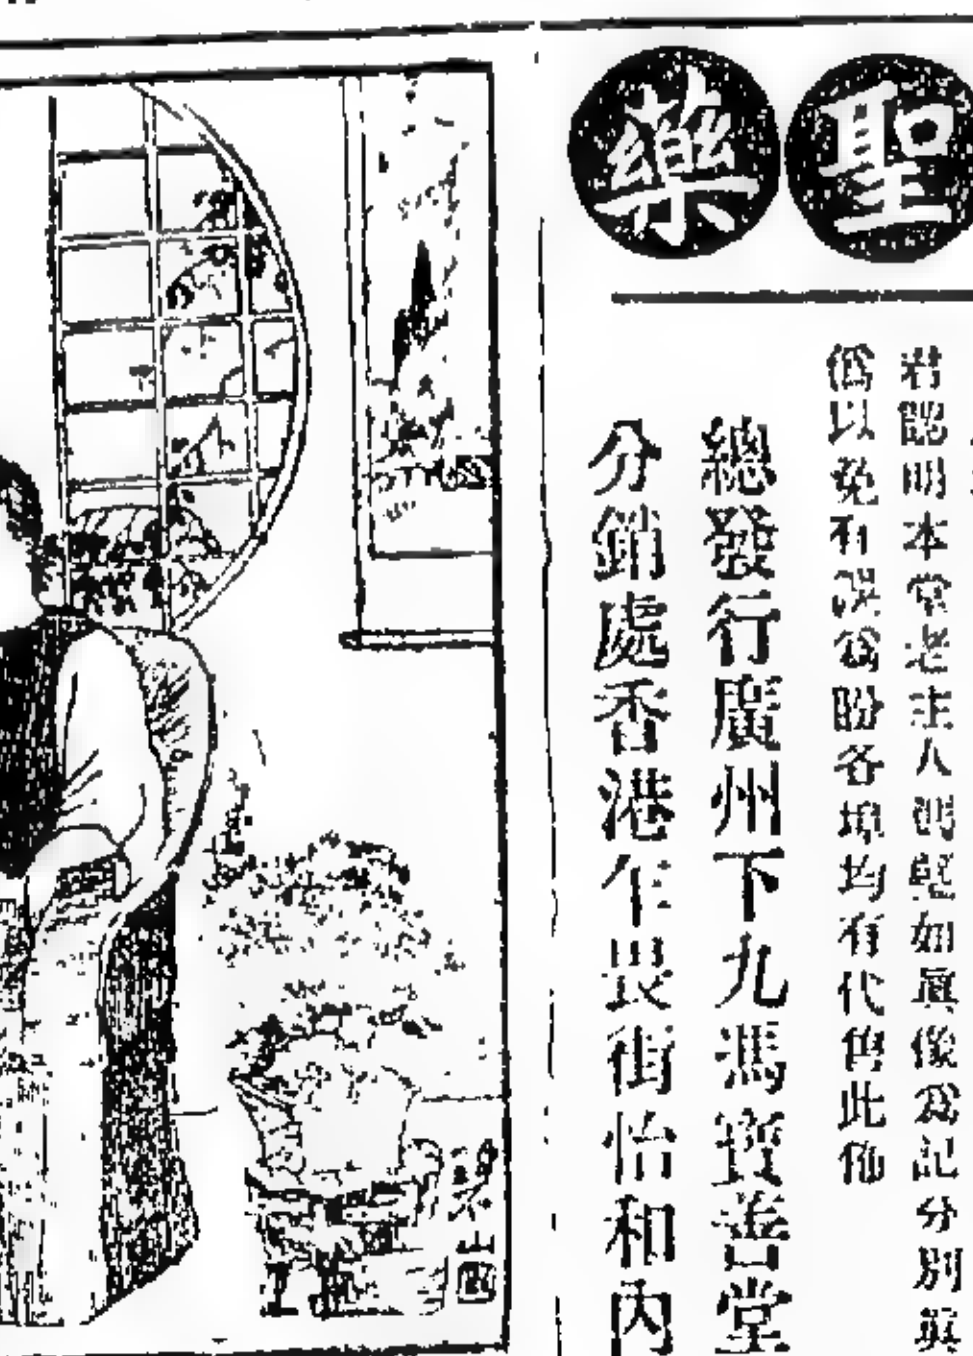 聖藥
君認明本堂老主人玉照如真像為記分別真
偽以免有誤為盼各埠均有代售此佈
總發行廣州下九馮寶善堂
分銷處香港乍畏街怡和內
山